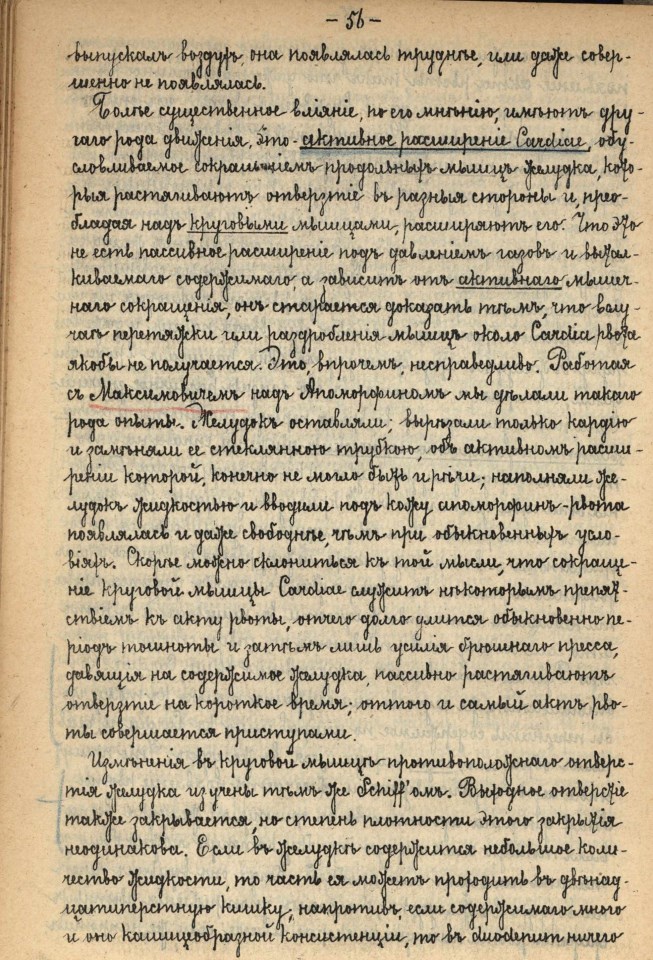 - 56 -
выпускалъ воздухъ, она появлялась труднѣе, или даже совер-
шенно не появлялась.
Болѣе существенное вліяніе, по его мнѣнію, имѣютъ дру-
гаго рода движенія, это - активное расширеніе Cardiae, обу-
словливаемое сокращеніемъ продольныхъ мышцъ желудка, кото-
рыя растягиваютъ отверзтіе въ разныя стороны и, прео-
бладая надъ круговыми мышцами, расширяютъ его. Что это
не есть пассивное расширеніе подъ давленіемъ газовъ и вытал-
киваемаго содержимаго а зависитъ отъ активнаго мышеч-
наго сокращенія, онъ старается доказать тѣмъ, что въ слу-
чаѣ перетяжки или раздробленія мышцъ около Cardia рвота
якобы не получается. Это, впрочемъ, несправедливо. Работая
съ Максимовичемъ надъ Апоморфиномъ мы дѣлали такаго
рода опыты. Желудокъ оставляли; вырѣзали только кардію
и замѣняли ее стеклянною трубкою, объ активномъ расши-
реніи которой, конечно не могло быть и рѣчи; наполняли же-
лудокъ жидкостью и вводили подъ кожу апоморфинъ - рвота
появлялась и даже свободнѣе, чѣмъ при обыкновенныхъ усло-
віяхъ. Скорѣе можно склониться къ той мысли, что сокраще-
ніе круговой мышцы Cardiae служитъ нѣкоторымъ препят-
ствіемъ къ акту рвоты, отчего долго длится обыкновенно пе-
ріодъ тошноты и затѣмъ лишь усилія брюшнаго пресса,
давящія на содержимое желудка, пассивно растягиваютъ
отверзтіе на короткое время; оттого и самый актъ рво-
ты совершается приступами.
Измѣненія въ круговой мышцѣ противоположнаго отверс-
тія желудка изучены тѣмъ же Schiff'омъ. Выходное отверстіе
также закрывается, но степень плотности этого закрытія
неодинакова. Если въ желудкѣ содержится небольшое коли-
чество жидкости, то часть ея можетъ проходить въ двѣнад-
цатиперстную кишку; напротивъ, если содержимаго много
и оно кашицеобразной консистенціи, то въ duodenum ничего